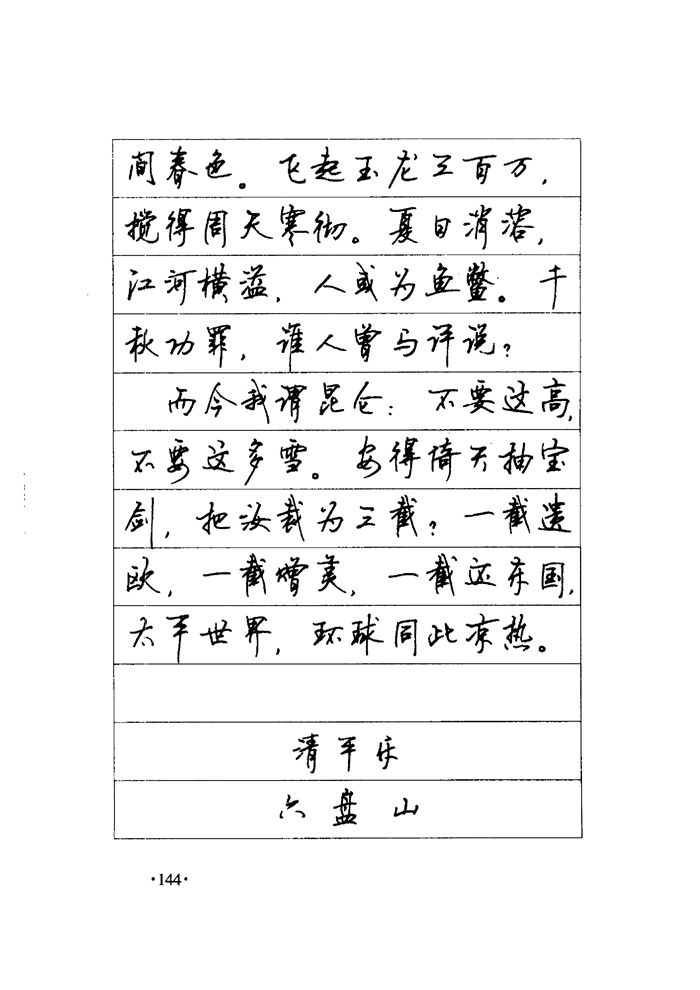 间春色。飞起玉龙三百万,
搅得周天寒彻。夏日消溶,
江河横溢,人或为鱼鳖。千
秋功罪,谁人曾与评说?
而今我谓昆仑:不要这高,
不要这多雪。安得倚天抽宝
剑,把汝裁为三截?一截遗
欧,一截赠美,一截还东国,
太平世界,环球同此凉热。
清平乐
六盘山
·144·